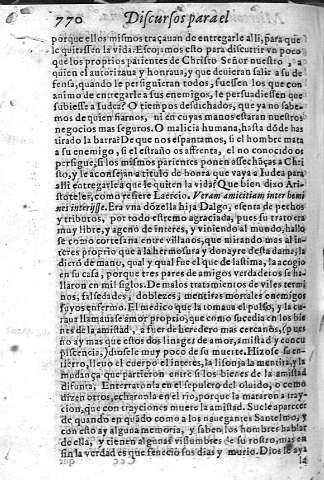 770 Discursos para el
porque ellos mismos traçauan de entregarle alli, para que
le quitassen la vida. Escojamos esto para discurrir vn poco
que los proprios parientes de Christo Señor nuestro, a
quien el autorizaua y honraua, y que deuieran salir a su de
fensa, quando le persiguieran todos, fuessen los que con
animo de entregarle a sus enemigos, le persuadiessen que
subiesse a Iudea? O tiempos desdichados, que ya no sabe-
mos de quien fiarnos, ni en cuyas manos estaran nuestros
negocios mas seguros. O malicia humana, hasta dōde has
tirado la barra! De que nos espantamos, si el hombre mata
a su enemigo, si el estraño os afrenta, el no conocido os
persigue, si los mismos parientes ponen assechāças a Chri
sto, y le aconsejan a titulo de honra que vaya a Iudea para
alli entregarle a que le quiten la vida? Que bien dixo Aris-
toteler, como refiere Laercio. Veram amicitiam inter homi
nes interijsse. Era vna dōzella hija Dalgo, esenta de pechos
y tributos, por todo estremo agraciada, pues su trato era
muy libre, y ageno de interes, y viniendo al mundo, hallo
se como cortesana entre villanos, que mirando mas al in-
teres proprio que a la hermosura y donayre desta dama, la
dierō de mano, qual y qual fue el que de lastima, la acogio
en su casa, porque tres pares de amigos verdaderos se ha-
llaron en mil siglos. De malos tratamientos de viles termi
nos, falsedades, doblezes, mentiras mortales enemigos
suyos enfermo. El medico que la tomaua el pulso, y la cu
raua llamauase amor proprio, que como sucedia en los bie
nes de la amistad, a fuer de heredero mas cercanōs, (pues
no ay mas que estos dos linages de amor, amistad y concu
piscencia,) diosele muy poco de su muerte. Hizose su en-
tierro, lleuo el cuerpo el interes, la lisonja la mentira, y la
mudança que partieron entre si los bienes de la amistad
difunta. Enterraronla en el sepulcro del oluido, o como
dizen otros, echaronla en el rio, porque la mataron a tray-
cion, que con trayciones muere la amistad. Suele aparecer
de quando en quādo como a los nauegantes Santelmo, y
con esto ay alguna memoria, y saben los hombres hablar
de ella, y tienen algunas vislumbres de su rostro, mas en
fin la verdad es que fenecio sus dias y murio. Dios le aya
la